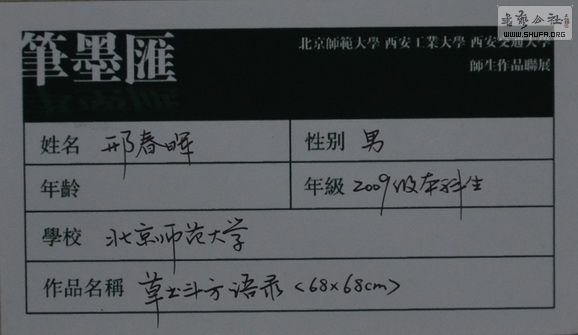 書法公社
WWW.SHUFA.ORG
筆墨匯
北京師範大學 西安工業大學 西安交通大學
師生作品聯展
姓名 邢春晖 性别 男
年齡 年級 2009级本科生
學校 北京师范大学
作品名稱 草书斗方语录<68×68cm>